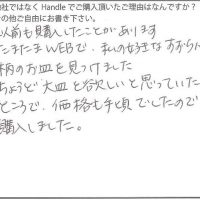 社ではなく Handle でご購入頂いたご理由はなんですか？
の他ご自由にお書き下さい。
以前も購入したことがあります
たまたまWEBで、私の好きなすずらん
柄のお皿を見つけました
ちょうど大皿を欲しいと思っていた
ところで、価格も手頃でしたので
購入しました。